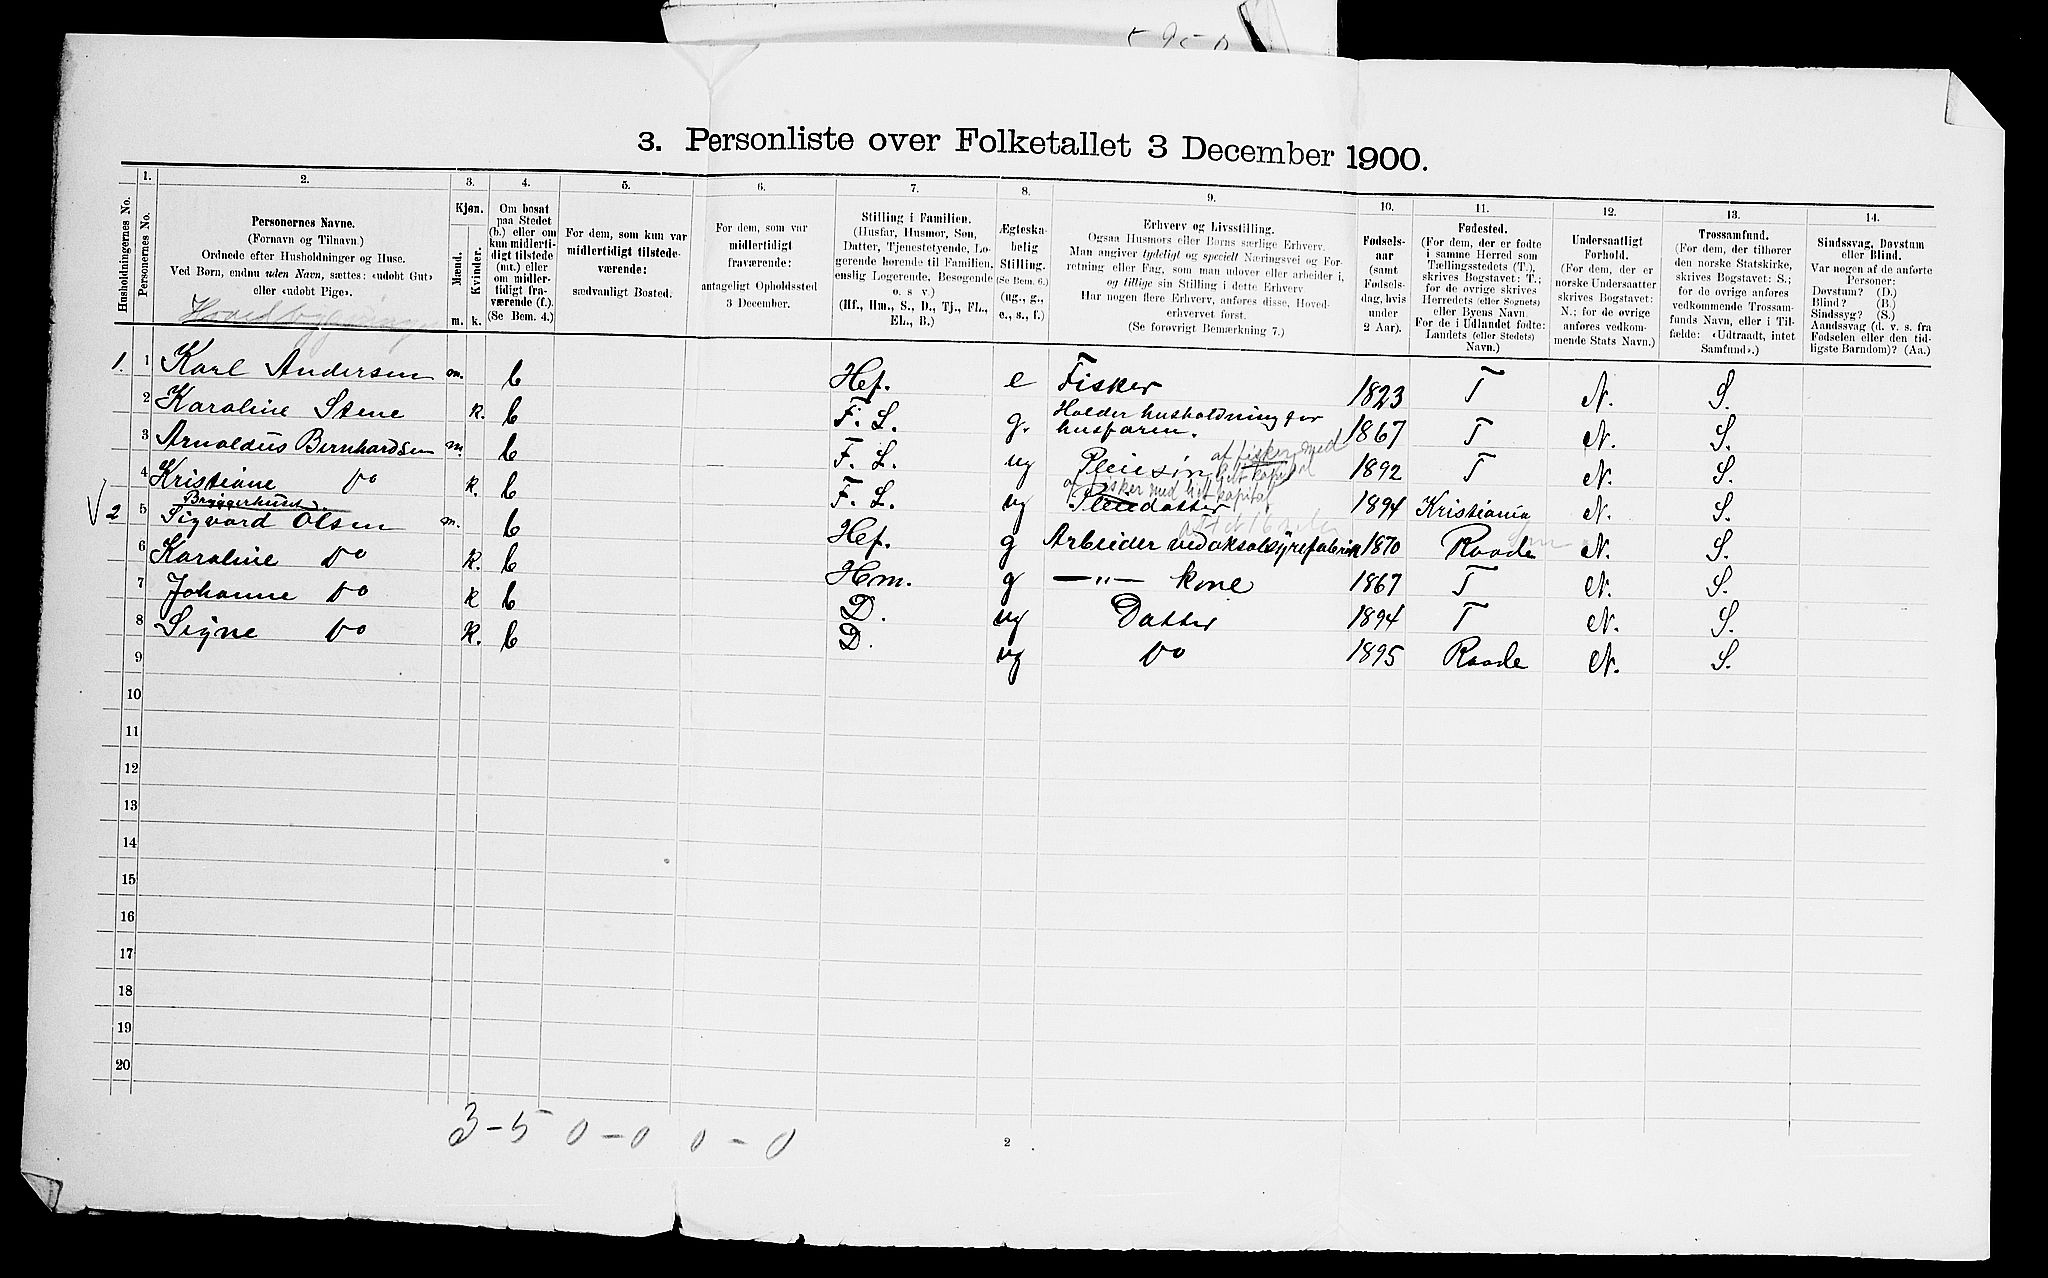 5950
3. Personliste over Folketallet 3 December 1900.
1. 2. 3. 4. 5. 6. 7. 8. 9. 10. 11. 12. 13. 14.
Husholdningernes No.
Personernes No.
Personernes Navne.
(Fornavn og Tilnavn.)
Ordnede efter Husholdninger og Huse.
Ved Børn, endnu uden Navn, sættes: «udøbt Gut»
eller «udøbt Pige».
Hovedbygning
Kjøn.
Mænd.
Kvinder.
m. k.
Om bosat
paa Stedet
(b.) eller om
kun midlerti-
digt tilstede
(mt.) eller
om midler-
tidigt fra-
værende (f.).
(Se Bem. 4.)
For dem, som kun var
midlertidigt tilstede-
værende:
sædvanligt Bosted.
For dem, som var
midlertidigt
fraværende:
antageligt Opholdssted
3 December.
Stilling i Familien.
(Husfar, Husmor, Søn,
Datter, Tjenestetyende, Lo-
gerende hørende til Familien,
enslig Logerende, Besøgende
o. s. v.)
(Hf., Hm., S., D., Tj., FL.,
EL., B.)
Ægteska-
belig
Stilling.
(Se Bem. 6.)
(ug., g.,
e., s., f.)
Erhverv og Livsstilling.
Ogsaa Husmors eller Børns særlige Erhverv.
Man angiver tydeligt og specielt Næringsvei og For-
retning eller Fag, som man udøver eller arbeider i,
og tillige sin Stilling i dette Erhverv
Har nogen flere Erhverv, anføres disse, Hoved-
erhvervet først.
(Se forøvrigt Bemærkning 7.)
Fødsels-
aar
(samt
Fødsels-
dag, hvis
under
2 Aar).
Fødested.
(For dem, der er fødte
i samme Herred som
Tællingsstedets (T.),
skrives Bogstavet: T.;
for de øvrige skrives
Herredets (eller Sognets)
eller Byens Navn.
For de i Udlandet fødte:
Landets (eller Stedets)
Navn.)
Undersaatligt
Forhold.
(For dem, der er
norske Undersaatter
skrives Bogstavet:
N.; for de øvrige
anføres vedkom-
mende Stats Navn.)
Trossamfund.
(For dem, der tilhører
den norske Statskirke,
skrives Bogstavet: S.;
for de øvrige anføres
vedkommende Trossam-
funds Navn, eller i Til-
fælde: «Udtraadt, intet
Samfund».)
Sindssvag, Døvstum
eller Blind.
Var nogen af de anførte
Personer:
Døvstum? (D.)
Blind? (B.)
Sindssyg? (S.)
Aandssvag (d. v. s. fra
Fødselen eller den tid-
ligste Barndom)? (Aa.)
1. 1 Karl Andersen m. b Hf. e Fisker 1823 T N. S.
2 Karoline Stene k. b F. L. g. Holder husholdning for husfaren. 1867 T N. S.
3 Arnoldus Bernhardsen m. b F. L. ug Pleiesøn af fisker med lidt kapital 1892 T N. S.
4 Kristiane do k. b F. L. ug Pleiedatter af fisker med lidt kapital 1894 Kristiania N. S.
Bryggerhuset.
2 5 Sigvard Olsen m. b Hf. g Arbeider ved oksalsyrefabrik 1870 Raade N. S.
6 Karoline do k. b Hm. g —"— kone 1867 T N. S.
7 Johanne do k b D. ug Datter 1894 T N. S.
8 Signe do k. b D. ug do 1895 Raade N. S.
9
10
11
12
13
14
15
16
17
18
19
20
3-5 0-0 0-0
2